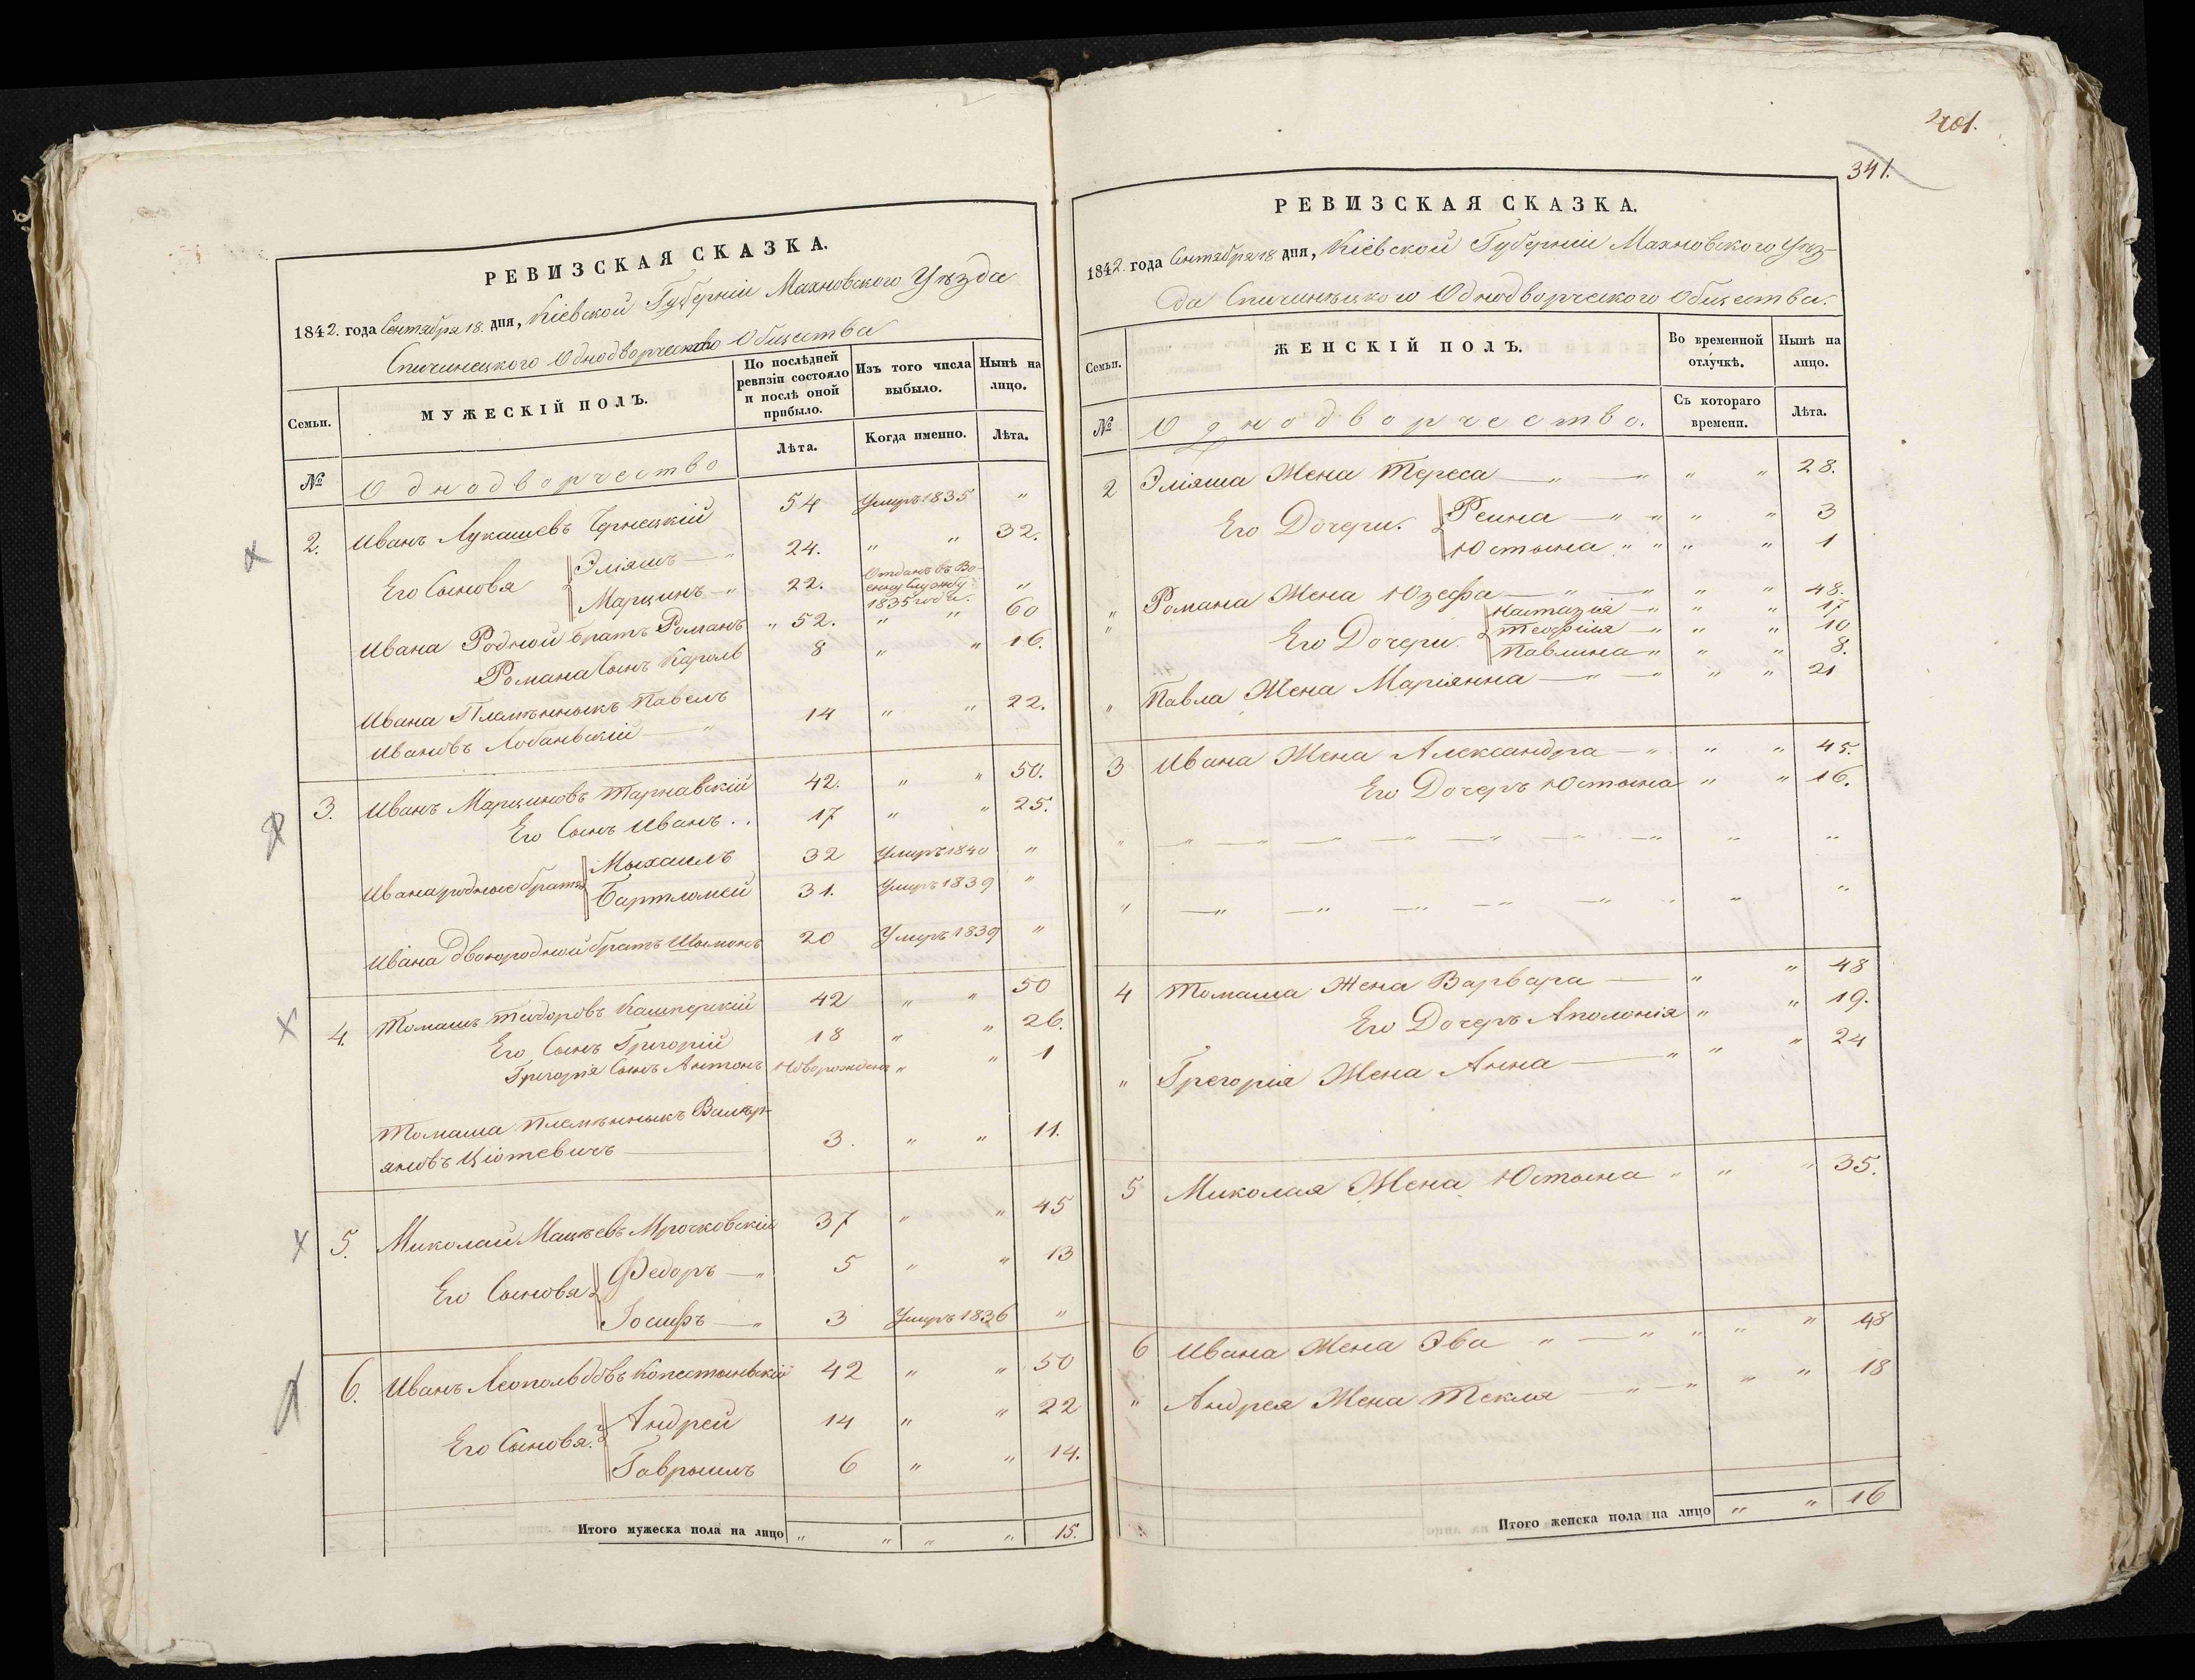 РЕВИЗСКАЯ СКАЗКА.
1842. года Сентября 18. дня, Кіевской Губерніи Махновского Уѣзда
Спичинецкого Однодворческого Общества
Семьи.
МУЖЕСКІЙ ПОЛЪ.
По послѣдней ревизіи состояло и послѣ оной прибыло.
Изъ того числа выбыло.
Нынѣ на лицо.
№
Однодворчество
Лѣта.
Когда именно.
Лѣта.
2. Иванъ Лукашевъ Чернецкій 54 Умеръ 1835 "
Его Сыновя Эліяшъ — " 24. " " 32.
Марцинъ — " 22. Отданъ въ Военну Службу 1835 года. "
Ивана Родной братъ Романъ " 52. " " 60
Романа Сынъ Кароль 8 " " 16.
Ивана Племѣнныкъ Павелъ
Ивановъ Лобанвскій — " 14 " " 22.
3. Иванъ Марциновъ Тарнавскій 42. " " 50.
Его Сынъ Иванъ . . 17 " " 25.
Ивана родные братя Мыхаилъ 32 Умеръ 1840 "
Бартломей 31. Умеръ 1839 "
Ивана двоюродной братъ Шымонъ 20 Умеръ 1839 "
4. Томашъ Теодоровъ Кашперскій 42 " " 50
Его Сынъ Григорій 18 " " 26.
Григорія Сынъ Антонъ Новорожденъ " " 1
Томаша Племѣнныкъ Валер-
яновъ Ціотевичъ — 3. " " 11.
5. Миколай Мацѣевъ Мрочковскій 37 " " 45
Его Сыновя Федоръ — " 5 " " 13
Іосифъ — " 3 Умеръ 1836 "
6. Иванъ Леопольдовъ Копестынскій 42 " " 50
Его Сыновя. Андрей 14 " " 22
Гаврыилъ 6 " " 14.
Итого мужеска пола на лицо " " " " 15.
401.
341.
РЕВИЗСКАЯ СКАЗКА.
1842. года Сентября 18 дня, Кіевской Губерніи Махновского Уѣз-
да Спичинѣцкого Однодворческого Общества.
Семьи.
ЖЕНСКІЙ ПОЛЪ.
Во временной отлучкѣ.
Нынѣ на лицо.
№
Однодворчество.
Съ котораго времени.
Лѣта.
2 Эліяша Жена Тереса — " — " " " 28.
Его Дочери. Реина — " " " " 3
Юстына " " " " 1
" Романа Жена Юзефа — " — " " " 48.
" Его Дочери. Настазія — " " " 17
Теофіля — " " " 10
Павлина " " " 8.
" Павла Жена Маріянна — " — " " " 21
3 Ивана Жена Александра — " " " 45.
Его Дочеръ Юстына " " 16.
4 Томаша Жена Варвара — " " 48
Его Дочеръ Аполонія " " 19.
" Грегорія Жена Анна — " " " 24
5 Миколая Жена Юстына " " " 35.
6 Ивана Жена Эва " — " " " " 48
" Андрея Жена Текля — " — " " " 18
Итого женска пола на лицо " " 16